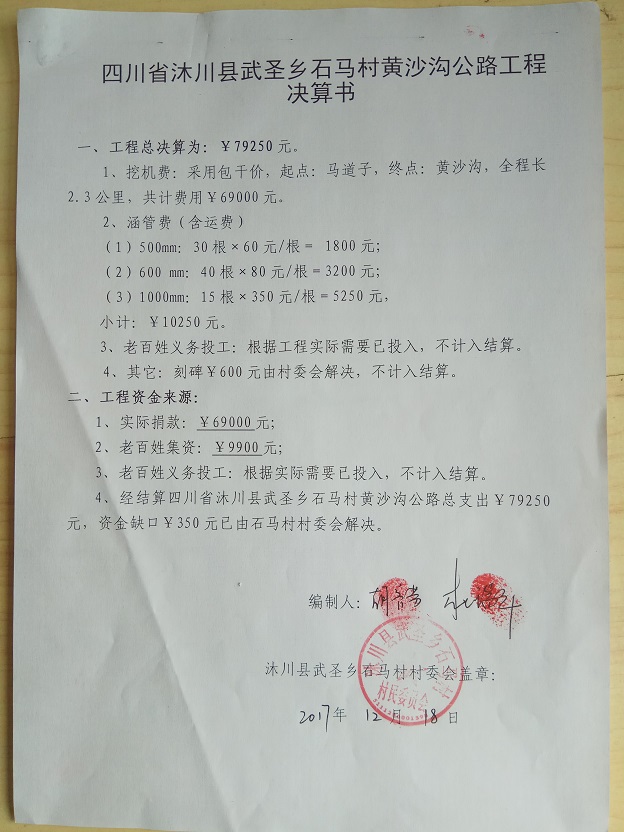 四川省沐川县武圣乡石马村黄沙沟公路工程
决算书
一、工程总决算为：￥79250元。
1、挖机费：采用包干价，起点：马道子，终点：黄沙沟，全程长
2.3公里，共计费用￥69000元。
2、涵管费（含运费）
（1）500mm：30根×60元/根= 1800元；
（2）600 mm：40根×80元/根=3200元；
（3）1000mm：15根×350元/根=5250元，
小计：￥10250元。
3、老百姓义务投工：根据工程实际需要已投入，不计入结算。
4、其它：刻碑￥600元由村委会解决，不计入结算。
二、工程资金来源：
1、实际捐款：￥69000元；
2、老百姓集资：￥9900元；
3、老百姓义务投工：根据实际需要已投入，不计入结算。
4、经结算四川省沐川县武圣乡石马村黄沙沟公路总支出￥79250
元，资金缺口￥350元已由石马村村委会解决。
编制人：
沐川县武圣乡石马村村委会盖章：
沐川县武圣乡石马村
村民委员会
2017年 12月 18日